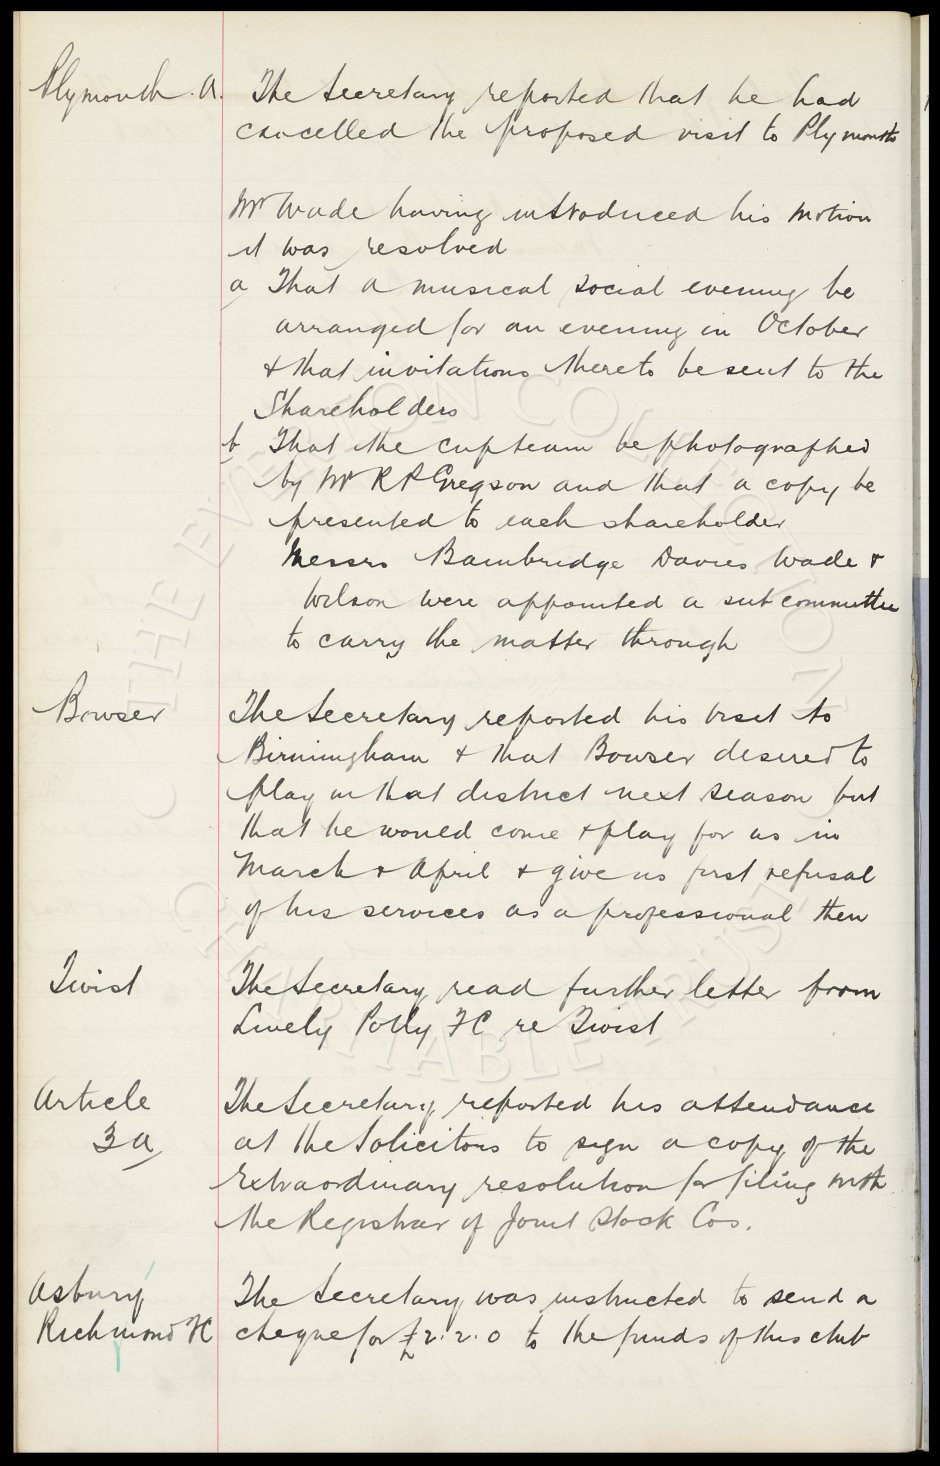 Plymouth. A. The Secretary reported that he had
cancelled the proposed visit to Plymouth
Mr Wade having introduced his motion
it was resolved
a That a musical social evening be
arranged for an evening in October
& that invitations thereto be sent to the
Shareholders
b That the cup team be photographed
by Mr R P Gregson and that a copy be
presented to each shareholder
Messrs Bainbridge Davies Wade &
Wilson were appointed a sub committee
to carry the matter through
Bowser The Secretary reported his visit to
Birmingham & that Bowser desired to
play in that district next season but
that he would come & play for us in
March & April & give us first refusal
of his services as a professional then
Twist The Secretary read further letter from
Lively Polly FC re Twist
Article The Secretary reported his attendance
3a at the Solicitors to sign a copy of the
Extraordinary resolution for filing with
the Registrar of Joint Stock Cos.
Asbury The Secretary was instructed to send a
Richmond FC cheque for £2.2.0 to the funds of this club
THE EVERTON COLLECTION
CHARITABLE TRUST